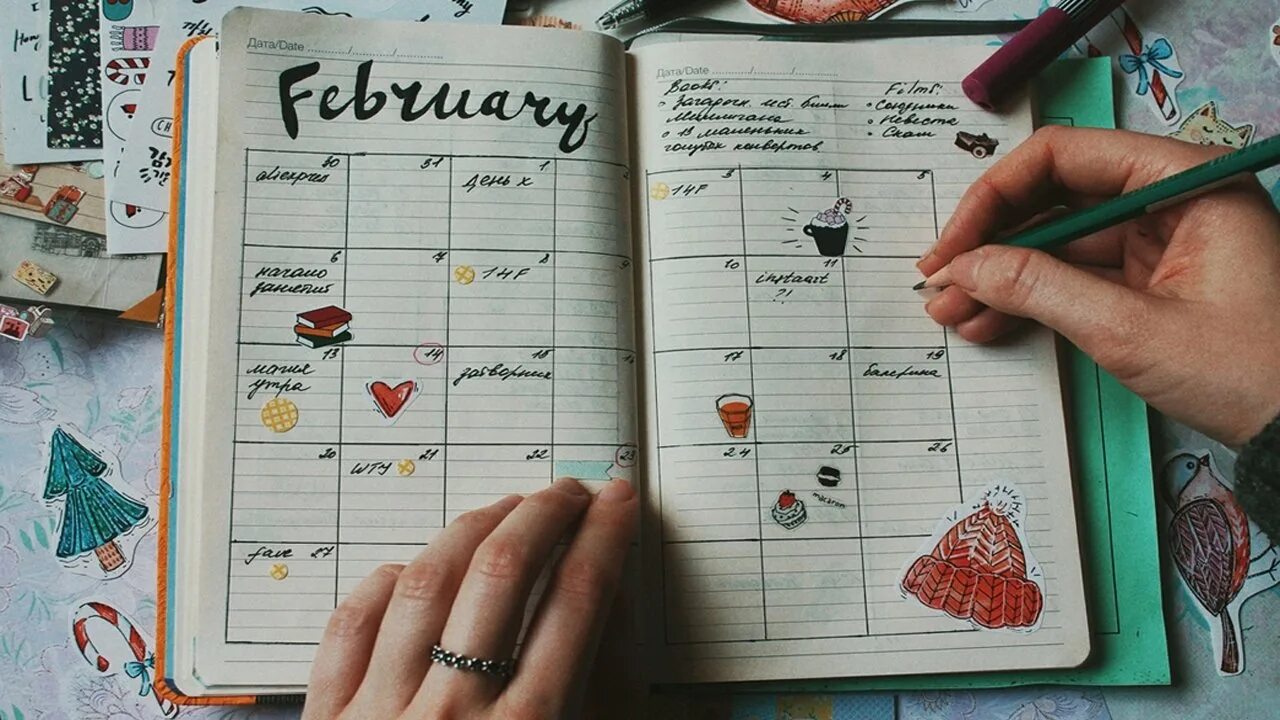 Дата/Date
February
30
31
1
2
aliexpress
день х
6
7
8
9
начало
занятий
14F
13
14
15
16
магия
утра
затворник
20
21
22
23
WTY
fave 27
Дата/Date
Books:
Мичигана
13 маленьких
голубых конвертов
Films:
Сводники
Невеста
Скат
3
4
5
14F
10
11
instaart
?!
17
18
19
балерина
24
25
26
macaron